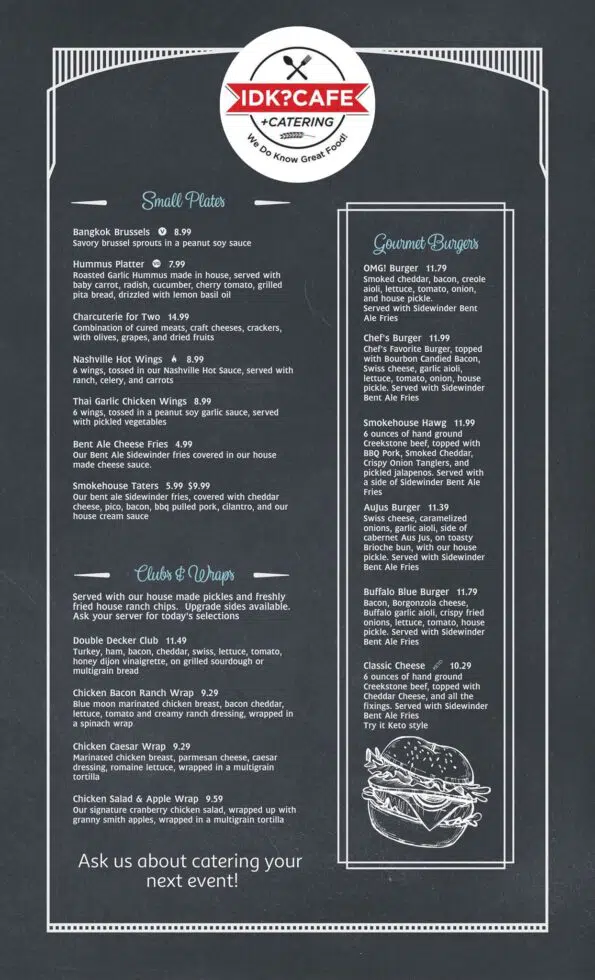 IDK?CAFE
+CATERING
We Do Know Great Food!
Small Plates
Bangkok Brussels V 8.99
Savory brussel sprouts in a peanut soy sauce
Hummus Platter 7.99
Roasted Garlic Hummus made in house, served with
baby carrot, radish, cucumber, cherry tomato, grilled
pita bread, drizzled with lemon basil oil
Charcuterie for Two 14.99
Combination of cured meats, craft cheeses, crackers,
with olives, grapes, and dried fruits
Nashville Hot Wings 8.99
6 wings, tossed in our Nashville Hot Sauce, served with
ranch, celery, and carrots
Thai Garlic Chicken Wings 8.99
6 wings, tossed in a peanut soy garlic sauce, served
with pickled vegetables
Bent Ale Cheese Fries 4.99
Our Bent Ale Sidewinder fries covered in our house
made cheese sauce.
Smokehouse Taters 5.99 $9.99
Our bent ale Sidewinder fries, covered with cheddar
cheese, pico, bacon, bbq pulled pork, cilantro, and our
house cream sauce
Clubs & Wraps
Served with our house made pickles and freshly
fried house ranch chips. Upgrade sides available.
Ask your server for today's selections
Double Decker Club 11.49
Turkey, ham, bacon, cheddar, swiss, lettuce, tomato,
honey dijon vinaigrette, on grilled sourdough or
multigrain bread
Chicken Bacon Ranch Wrap 9.29
Blue moon marinated chicken breast, bacon cheddar,
lettuce, tomato and creamy ranch dressing, wrapped in
a spinach wrap
Chicken Caesar Wrap 9.29
Marinated chicken breast, parmesan cheese, caesar
dressing, romaine lettuce, wrapped in a multigrain
tortilla
Chicken Salad & Apple Wrap 9.59
Our signature cranberry chicken salad, wrapped up with
granny smith apples, wrapped in a multigrain tortilla
Ask us about catering your
next event!
Gourmet Burgers
OMG! Burger 11.79
Smoked cheddar, bacon, creole
aioli, lettuce, tomato, onion,
and house pickle.
Served with Sidewinder Bent
Ale Fries
Chef's Burger 11.99
Chef's Favorite Burger, topped
with Bourbon Candied Bacon,
Swiss cheese, garlic aioli,
lettuce, tomato, onion, house
pickle. Served with Sidewinder
Bent Ale Fries
Smokehouse Hawg 11.99
6 ounces of hand ground
Creekstone beef, topped with
BBQ Pork, Smoked Cheddar,
Crispy Onion Tanglers, and
pickled jalapenos. Served with
a side of Sidewinder Bent Ale
Fries
AuJus Burger 11.39
Swiss cheese, caramelized
onions, garlic aioli, side of
cabernet Aus Jus, on toasty
Brioche bun, with our house
pickle. Served with Sidewinder
Bent Ale Fries
Buffalo Blue Burger 11.79
Bacon, Borgonzola cheese,
Buffalo garlic aioli, crispy fried
onions, lettuce, tomato, house
pickle. Served with Sidewinder
Bent Ale Fries
Classic Cheese 10.29
6 ounces of hand ground
Creekstone beef, topped with
Cheddar Cheese, and all the
fixings. Served with Sidewinder
Bent Ale Fries
Try it Keto style